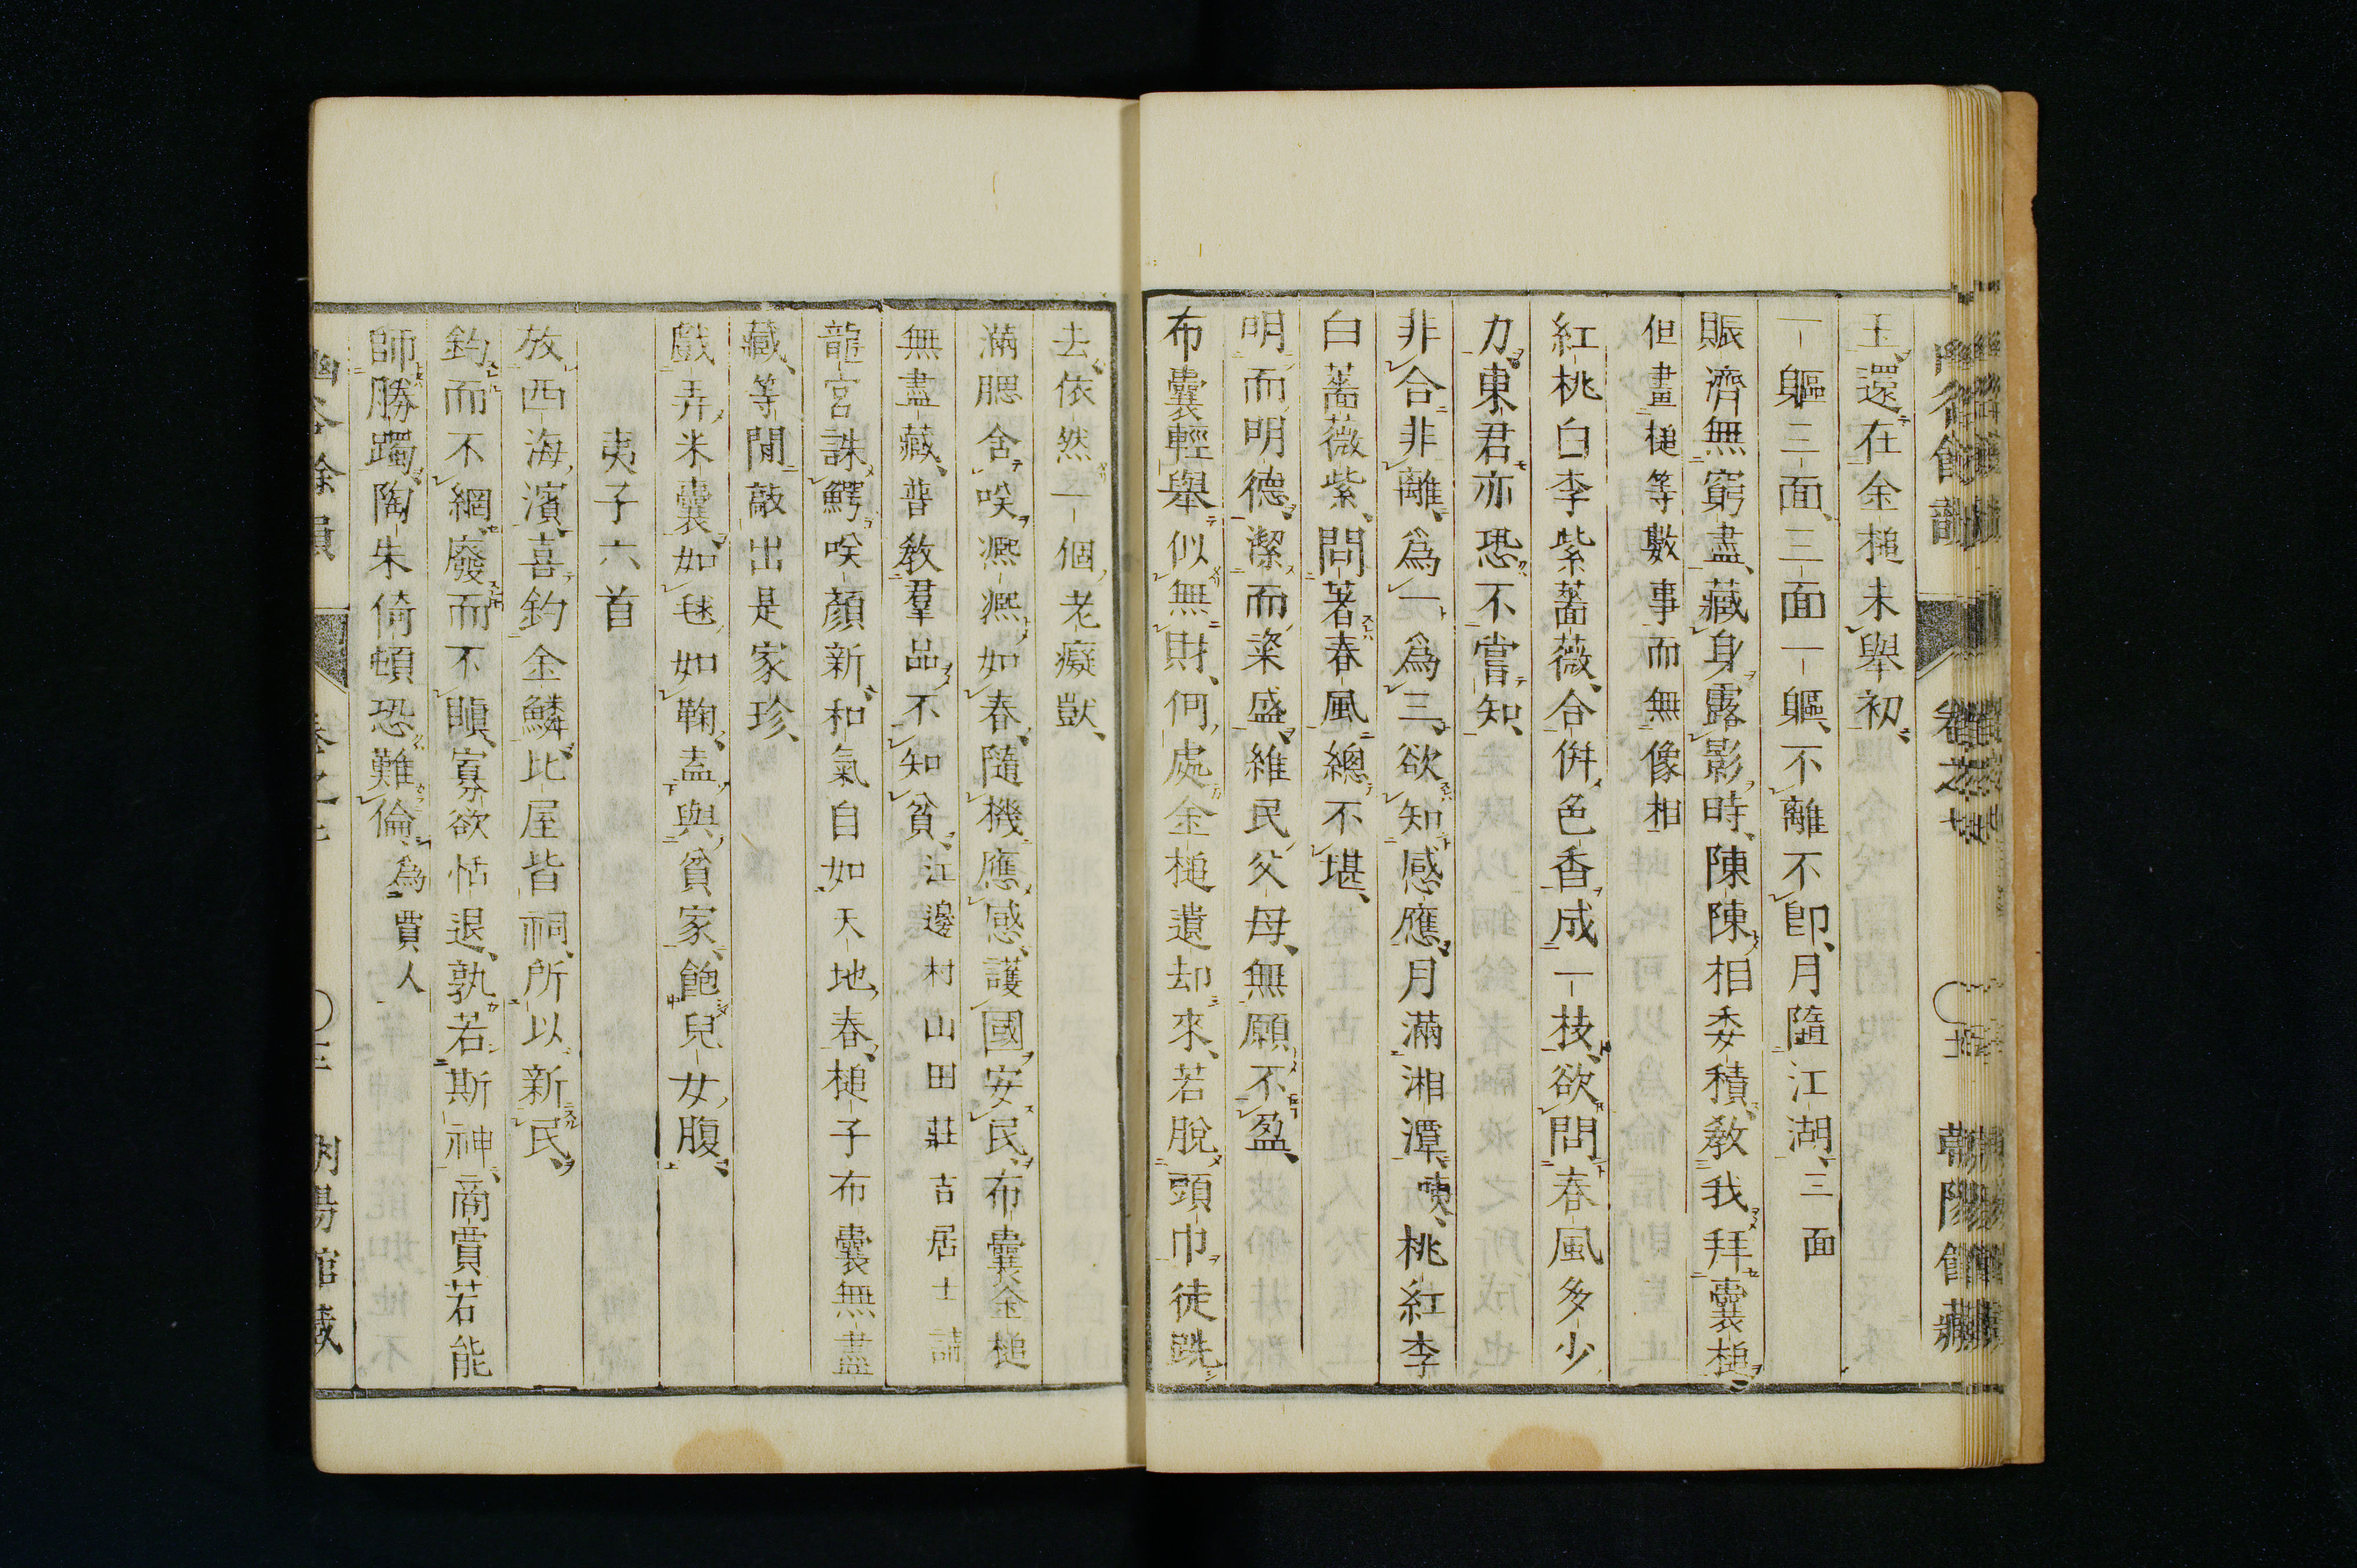 玉還在金槌未舉初
一軀三面三面一軀不離不卽月隨江湖三面
賑濟無窮盡藏身露影時陳陳相委積敎我拜囊槌
但畫槌等數事而無像相
紅桃白李紫薔薇合倂色香成一枝欲問春風多少
力東君亦恐不嘗知
非合非離爲一爲三欲知感應月滿湘潭咦桃紅李
白薔薇紫問著春風總不堪
明而明德潔而粢盛維民父母無願不盈
布囊輕舉似無財何處金槌遺却來若脫頭巾徒跣
去依然一個老癡獃
滿腮含咲凞凞如春隨機應感護國安民布囊金槌
無盡藏普敎羣品不知貧江邊村山田莊吉居士請
龍宮誅鰐咲顏新和氣自如天地春槌子布囊無盡
藏等閒敲出是家珍
戲弄米囊如毬如鞠盍與貧家飽兒女腹
夷子六首
放西海濱喜釣金鱗比屋皆祠所以新民
釣而不網廢而不瞋寡欲恬退孰若斯神商賈若能
師勝躅陶朱倚頓恐難倫為賈人